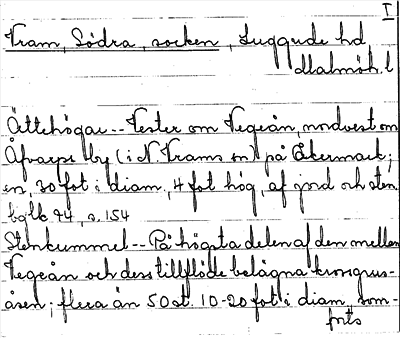 I
Tram, Södra, socken, Luggude hd
Malmöh. l
Ättehögar -- Vester om Vegeån, nordvest om
Åfvarps by (i N. Trams sn) på Åkermark;
en, 30 fot i diam., 4 fot hög, af jord och sten
bglk 74, s. 154
Stenkummel -- På högsta delen af den mellan
Vegeån och dess tillflöde belägna krosgrus-
åsen; flera än 50 st. 10-20 fot i diam. som-
forts